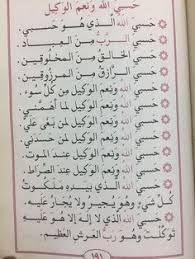 حَسْبِيَ اللهُ وَنِعْمَ الْوَكِيلُ
حَسْبِيَ اللهُ الَّذِي هُوَ حَسْبِي.
حَسْبِيَ الرَّبُّ مِنَ الْعِبَادِ.
حَسْبِيَ الْخَالِقُ مِنَ الْمَخْلُوقِينَ.
حَسْبِيَ الرَّازِقُ مِنَ الْمَرْزُوقِينَ.
حَسْبِيَ اللهُ وَنِعْمَ الْوَكِيلُ مِنْ كُلِّ سُوءٍ.
حَسْبِيَ اللهُ وَنِعْمَ الْوَكِيلُ لِمَا أَهَمَّنِي.
حَسْبِيَ اللهُ وَنِعْمَ الْوَكِيلُ لِمَنْ بَغَى عَلَيَّ.
حَسْبِيَ اللهُ وَنِعْمَ الْوَكِيلُ لِمَنْ
حَسْبِيَ اللهُ وَنِعْمَ الْوَكِيلُ عِنْدَ الْمَوْتِ.
حَسْبِيَ اللهُ وَنِعْمَ الْوَكِيلُ عِنْدَ الصِّرَاطِ.
حَسْبِيَ اللهُ الَّذِي بِيَدِهِ مَلَكُوتُ
كُلِّ شَيْءٍ وَهُوَ يُجِيرُ وَلَا يُجَارُ عَلَيْهِ
حَسْبِيَ اللهُ الَّذِي لَا إِلَهَ إِلَّا هُوَ عَلَيْهِ
تَوَكَّلْتُ وَهُوَ رَبُّ الْعَرْشِ الْعَظِيمِ.
١٩١